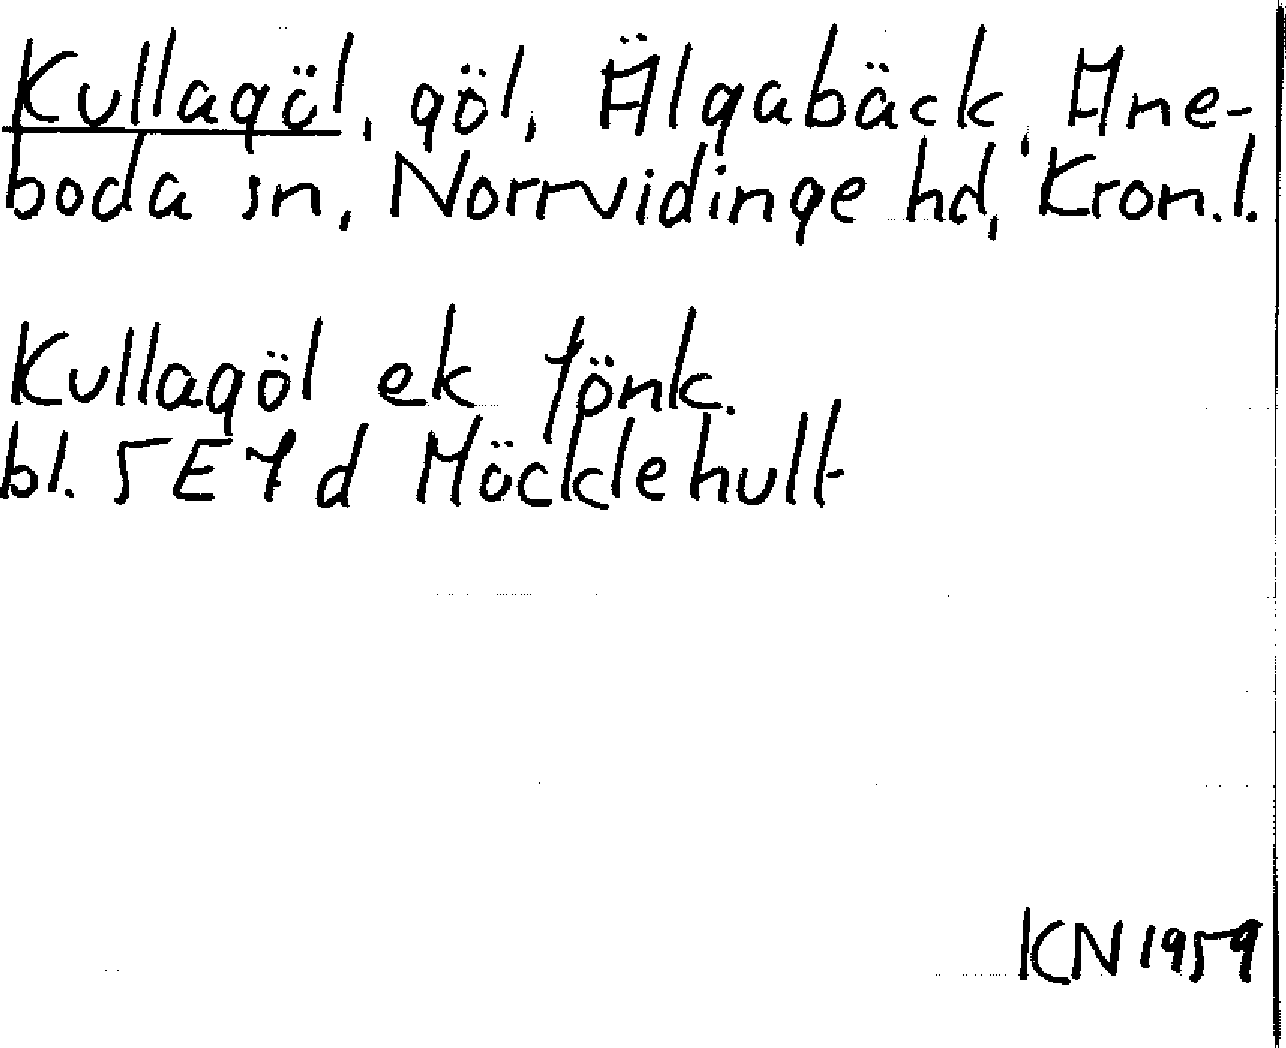 Kullagöl, göl, Älgabäck, Ane-
boda sn, Norrvidinge hd, Kron.l.
Kullagöl ek Jönk.
bl. 5E7d Möcklehult
KN 1959